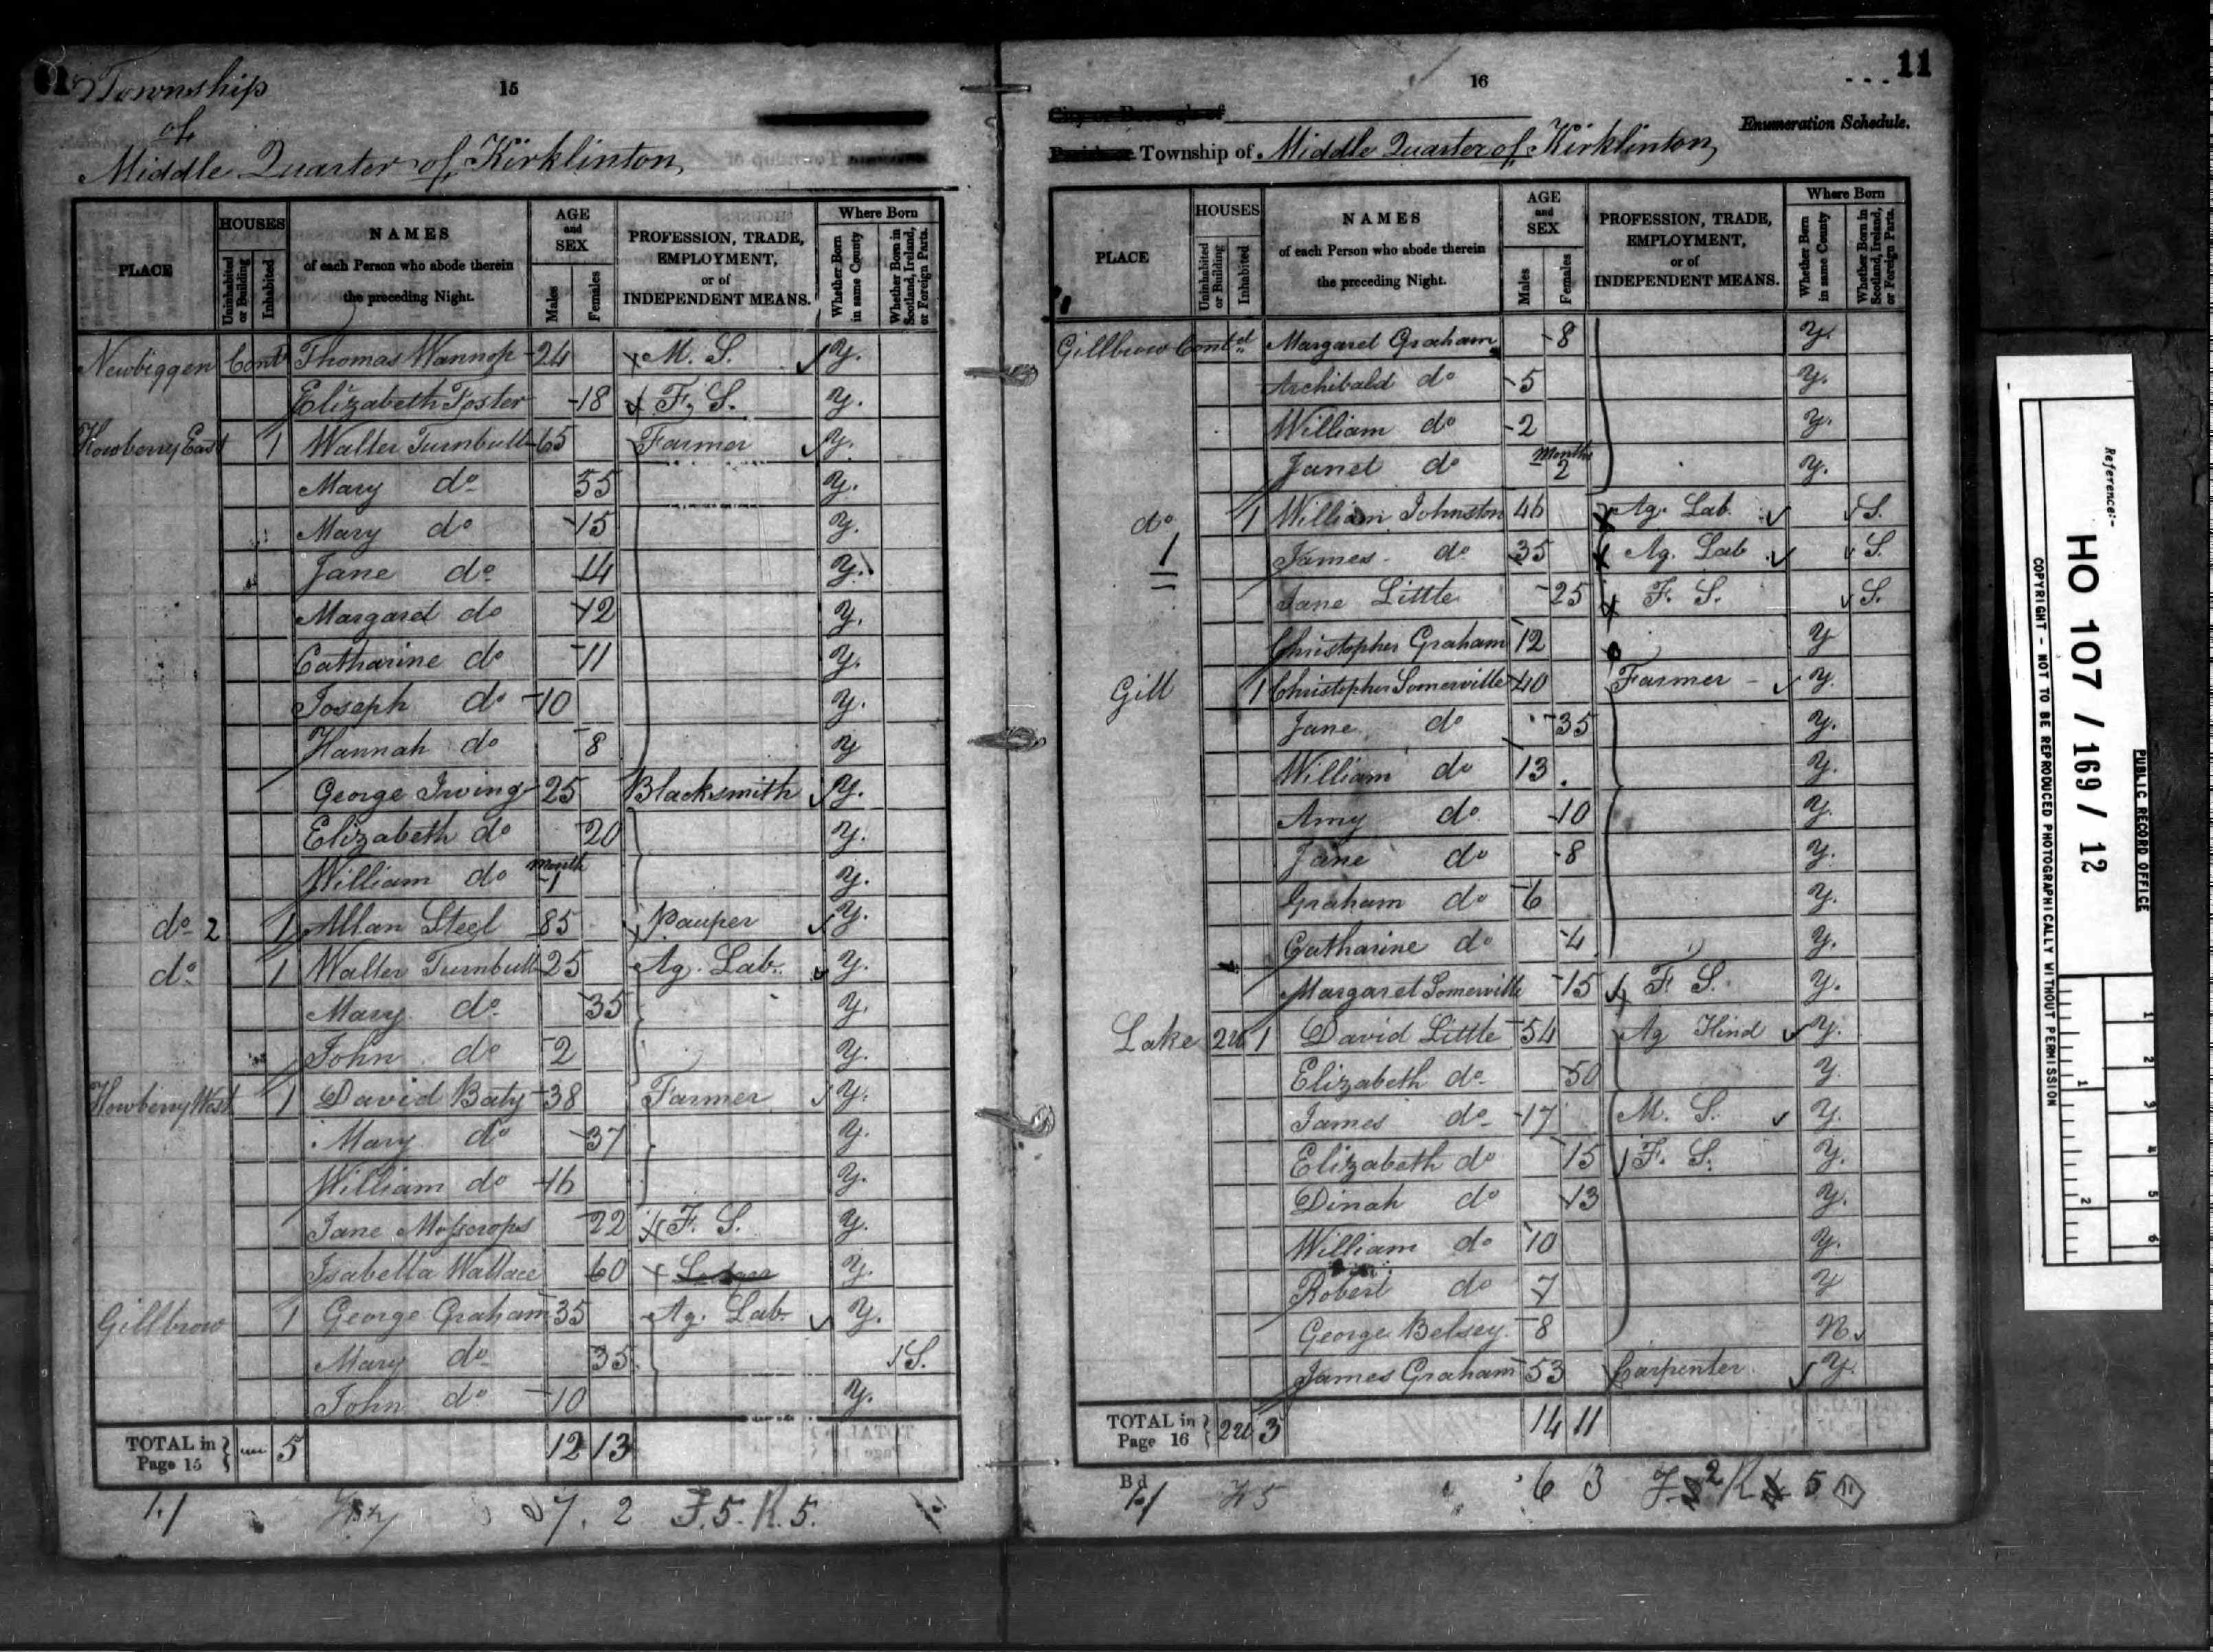 Township
of
Middle Quarter of Kirklinton,
15
PLACE
HOUSES
Uninhabited or Building
Inhabited
NAMES
of each Person who abode therein
the preceding Night.
AGE
and
SEX
Males
Females
PROFESSION, TRADE,
EMPLOYMENT,
or of
INDEPENDENT MEANS.
Where Born
Whether Born in same County
Whether Born in Scotland, Ireland, or Foreign Parts.
Newbiggen Contd Thomas Wannop 24 M. S. Y.
Elizabeth Foster 18 F. S. Y.
Howberry East 1 Walter Turnbull 65 Farmer Y.
Mary do 55 Y.
Mary do 15 Y.
Jane do 14 Y.
Margaret do 12 Y.
Catharine do 11 Y.
Joseph do 10 Y.
Hannah do 8 Y
George Irving 25 Blacksmith Y.
Elizabeth do 20 Y.
William do Month 1 Y.
do 2 1 Allan Steel 85 Pauper Y.
do 1 Walter Turnbull 25 Ag. Lab. Y.
Mary do 35 Y.
John do 2 Y.
Howberry West 1 David Baty 38 Farmer Y.
Mary do 37 Y.
William do 16 Y.
Jane Moſscrops 22 F. S. Y.
Isabella Wallace 60 Y.
Gillbrow 1 George Graham 35 Ag. Lab. Y.
Mary do 35 S.
John do 10 Y.
TOTAL in
Page 15 5 12 13
1.1 7. 2 F. 5. K. 5.
16
11
City or Borough of
Enumeration Schedule.
Township of Middle Quarter of Kirklinton,
PLACE
HOUSES
Uninhabited or Building
Inhabited
NAMES
of each Person who abode therein
the preceding Night.
AGE
and
SEX
Males
Females
PROFESSION, TRADE,
EMPLOYMENT,
or of
INDEPENDENT MEANS.
Where Born
Whether Born in same County
Whether Born in Scotland, Ireland, or Foreign Parts.
Gillbrow Contd Margaret Graham 8 Y.
Archibald do 5 Y.
William do 2 Y.
Janet do Months 2 Y.
do 1 William Johnston 46 Ag. Lab. S.
James do 35 Ag. Lab S.
Jane Little 25 F. S. S.
Christopher Graham 12 Y
Gill 1 Christopher Somerville 40 Farmer Y.
Jane do 35 Y.
William do 13 Y.
Amy do 10 Y.
Jane do 8 Y.
Graham do 6 Y.
Catharine do 4 Y.
Margaret Somerville 15 F. S. Y.
Lake 2u 1 David Little 54 Ag Hind Y.
Elizabeth do 50 Y
James do 17 M. S. Y.
Elizabeth do 15 F. S. Y.
Dinah do 13 Y.
William do 10 Y.
Robert do 7 Y
George Belsey 8 N
James Graham 53 Carpenter Y.
TOTAL in
Page 16 2u 3 14 11
Bd
1.1 5 6 3 5
Reference:-
HO 107 / 169 / 12
PUBLIC RECORD OFFICE
COPYRIGHT - NOT TO BE REPRODUCED PHOTOGRAPHICALLY WITHOUT PERMISSION
1
2
3
4
5
6
1
2